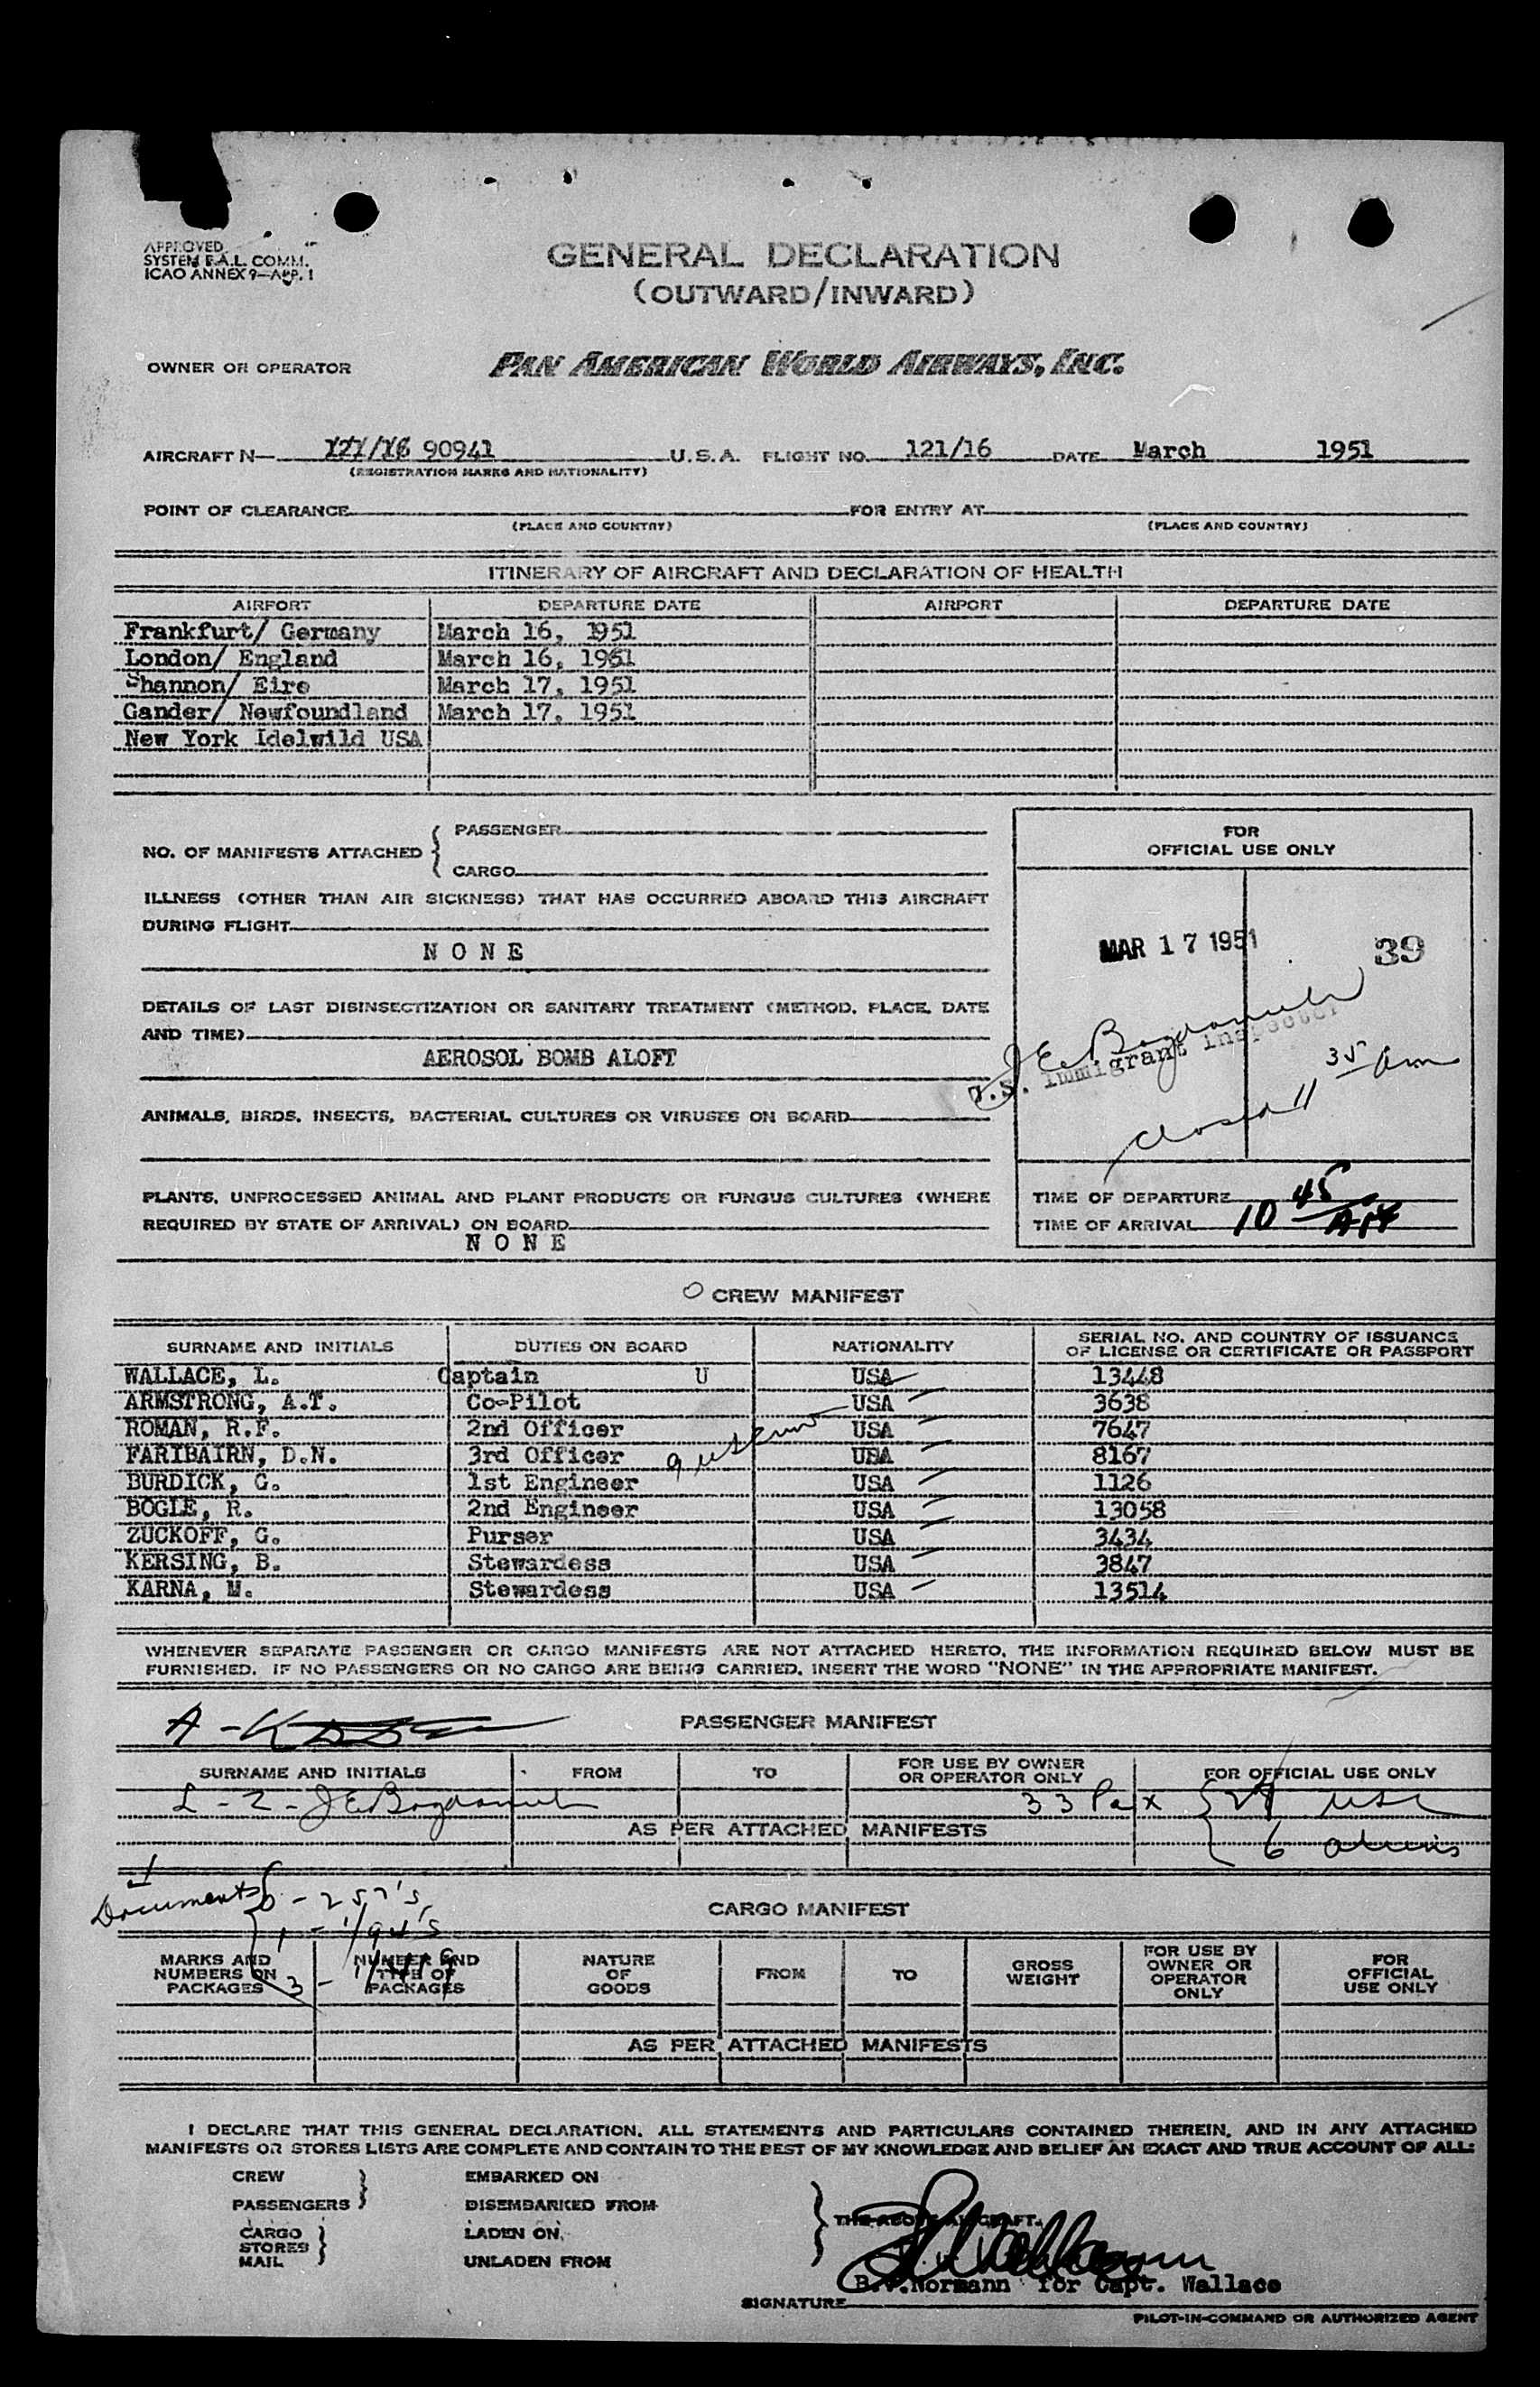 APPROVED
SYSTEM F.A.L. COMM.
ICAO ANNEX 9—APP. 1
GENERAL DECLARATION
(OUTWARD/INWARD)
OWNER OR OPERATOR PAN AMERICAN WORLD AIRWAYS, INC.
AIRCRAFT N— 121/16 90941 U.S.A. FLIGHT NO. 121/16 DATE March 1951
(REGISTRATION MARKS AND NATIONALITY)
POINT OF CLEARANCE FOR ENTRY AT
(PLACE AND COUNTRY) (PLACE AND COUNTRY)
ITINERARY OF AIRCRAFT AND DECLARATION OF HEALTH
AIRPORT DEPARTURE DATE AIRPORT DEPARTURE DATE
Frankfurt/ Germany March 16, 1951
London/ England March 16, 1951
Shannon/ Eire March 17, 1951
Gander/ Newfoundland March 17, 1951
New York Idelwild USA
NO. OF MANIFESTS ATTACHED { PASSENGER
CARGO
FOR
OFFICIAL USE ONLY
ILLNESS (OTHER THAN AIR SICKNESS) THAT HAS OCCURRED ABOARD THIS AIRCRAFT
DURING FLIGHT
N O N E
MAR 17 1951 39
DETAILS OF LAST DISINSECTIZATION OR SANITARY TREATMENT (METHOD, PLACE, DATE
AND TIME)
AEROSOL BOMB ALOFT
U.S. Immigrant Inspector
closed 11 35 am
ANIMALS, BIRDS, INSECTS, BACTERIAL CULTURES OR VIRUSES ON BOARD
PLANTS, UNPROCESSED ANIMAL AND PLANT PRODUCTS OR FUNGUS CULTURES (WHERE
REQUIRED BY STATE OF ARRIVAL) ON BOARD
N O N E
TIME OF DEPARTURE
TIME OF ARRIVAL 10 45
CREW MANIFEST
SURNAME AND INITIALS DUTIES ON BOARD NATIONALITY SERIAL NO. AND COUNTRY OF ISSUANCE
OF LICENSE OR CERTIFICATE OR PASSPORT
WALLACE, L. Captain U USA 13448
ARMSTRONG, A.T. Co-Pilot USA 3638
ROMAN, R.F. 2nd Officer USA 7647
FARIBAIRN, D.N. 3rd Officer USA 8167
BURDICK, G. 1st Engineer USA 1126
BOGLE, R. 2nd Engineer USA 13058
ZUCKOFF, G. Purser USA 3434
KERSING, B. Stewardess USA 3847
KARNA, M. Stewardess USA 13514
WHENEVER SEPARATE PASSENGER OR CARGO MANIFESTS ARE NOT ATTACHED HERETO, THE INFORMATION REQUIRED BELOW MUST BE
FURNISHED. IF NO PASSENGERS OR NO CARGO ARE BEING CARRIED, INSERT THE WORD "NONE" IN THE APPROPRIATE MANIFEST.
A - K
PASSENGER MANIFEST
SURNAME AND INITIALS FROM TO FOR USE BY OWNER
OR OPERATOR ONLY FOR OFFICIAL USE ONLY
L - Z - 33 Pax { 27 USC
AS PER ATTACHED MANIFESTS
6 aliens
Documents
CARGO MANIFEST
MARKS AND
NUMBERS ON
PACKAGES NUMBER AND
TYPE OF
PACKAGES NATURE
OF
GOODS FROM TO GROSS
WEIGHT FOR USE BY
OWNER OR
OPERATOR
ONLY FOR
OFFICIAL
USE ONLY
AS PER ATTACHED MANIFESTS
I DECLARE THAT THIS GENERAL DECLARATION, ALL STATEMENTS AND PARTICULARS CONTAINED THEREIN, AND IN ANY ATTACHED
MANIFESTS OR STORES LISTS ARE COMPLETE AND CONTAIN TO THE BEST OF MY KNOWLEDGE AND BELIEF AN EXACT AND TRUE ACCOUNT OF ALL:
CREW EMBARKED ON
PASSENGERS DISEMBARKED FROM
THE ABOVE AIRCRAFT.
CARGO LADEN ON
STORES
MAIL UNLADEN FROM
B.V.Normann for Capt. Wallace
SIGNATURE
PILOT-IN-COMMAND OR AUTHORIZED AGENT